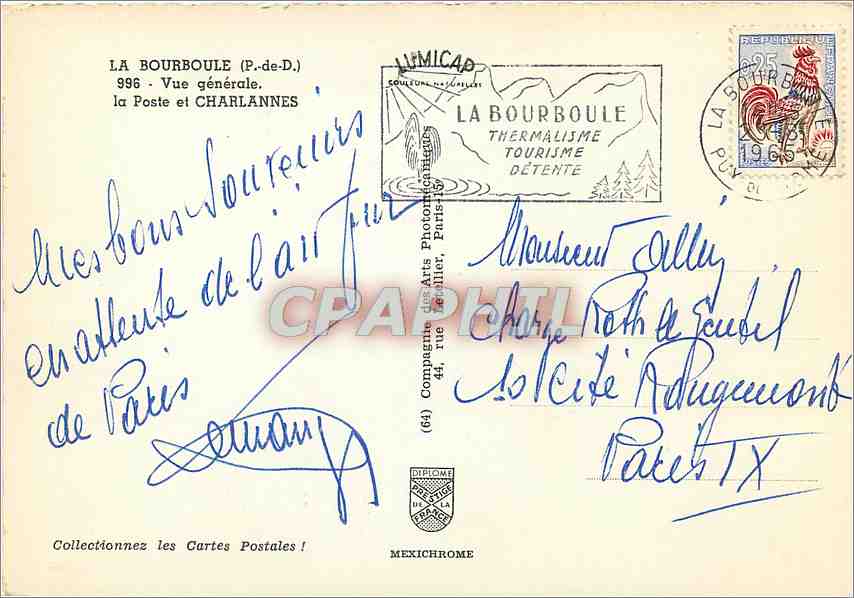 LA BOURBOULE (P.-de-D.)
996 - Vue générale.
la Poste et CHARLANNES
LUMICAP
COULEURS NATURELLES
LA BOURBOULE
THERMALISME
TOURISME
DÉTENTE
REPUBLIQUE FRANÇAISE
0,25
LA BOURBOULE
1965
PUY DE DOME
Mes bons souvenirs
en attente de l'air pur
de Paris
(64) Compagnie des Arts Photomécaniques
44, rue Letellier, Paris-15e
CPAPHIL
Monsieur
Charge
10 Cité Rougemont
Paris IX
DIPLOME
PRESTIGE
DE LA
FRANCE
Collectionnez les Cartes Postales !
MEXICHROME